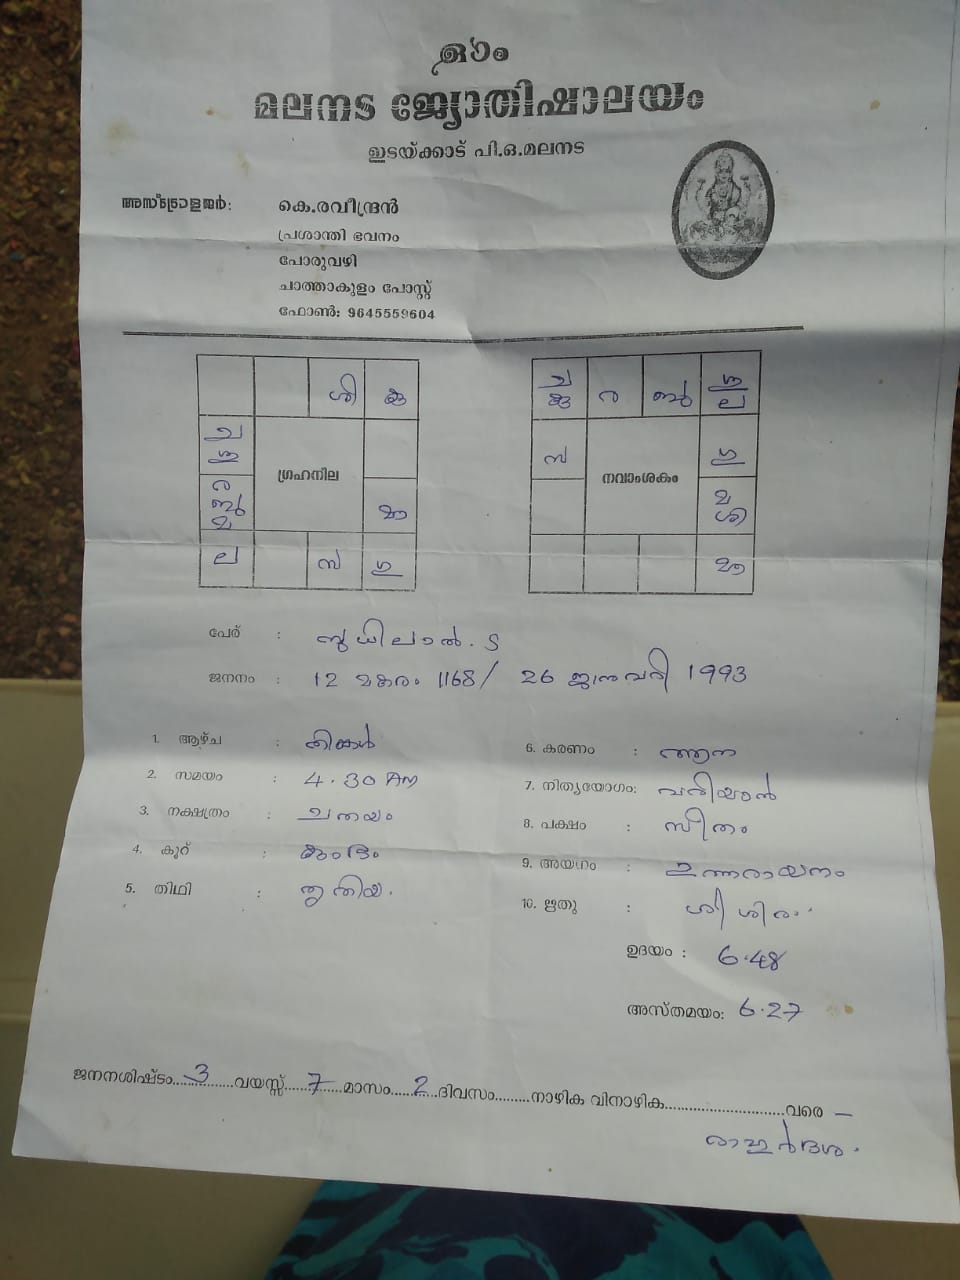 ഓം
മലനട ജ്യോതിഷാലയം
ഇടയ്ക്കാട് പി.ഒ.മലനട
അസ്ട്രോളജർ: കെ.രവീന്ദ്രൻ
പ്രശാന്തി ഭവനം
പോരുവഴി
ചാത്താകുളം പോസ്റ്റ്
ഫോൺ: 9645559604
ശി കു
ച ശു
ഗ്രഹനില
ര ബു മ
മാ
ല സ ഗു
ച കു ര ബു ശു ല
സ ഗു
നവാംശകം
മ ശി
മാ
പേര് : സുധിലാൽ. S
ജനനം : 12 മകരം 1168 / 26 ജനുവരി 1993
1. ആഴ്ച : തിങ്കൾ
2. സമയം : 4.30 AM
3. നക്ഷത്രം : ചതയം
4. കൂറ് : കുംഭം
5. തിഥി : തൃതീയ.
6. കരണം : ആന
7. നിത്യയോഗം: വരിയാൻ
8. പക്ഷം : സിതം
9. അയനം : ഉത്തരായനം
10. ഋതു : ശിശിരം
ഉദയം : 6.48
അസ്തമയം: 6.27
ജനനശിഷ്ടം 3 വയസ്സ് 7 മാസം 2 ദിവസം നാഴിക വിനാഴിക വരെ –
രാഹുർദശ.